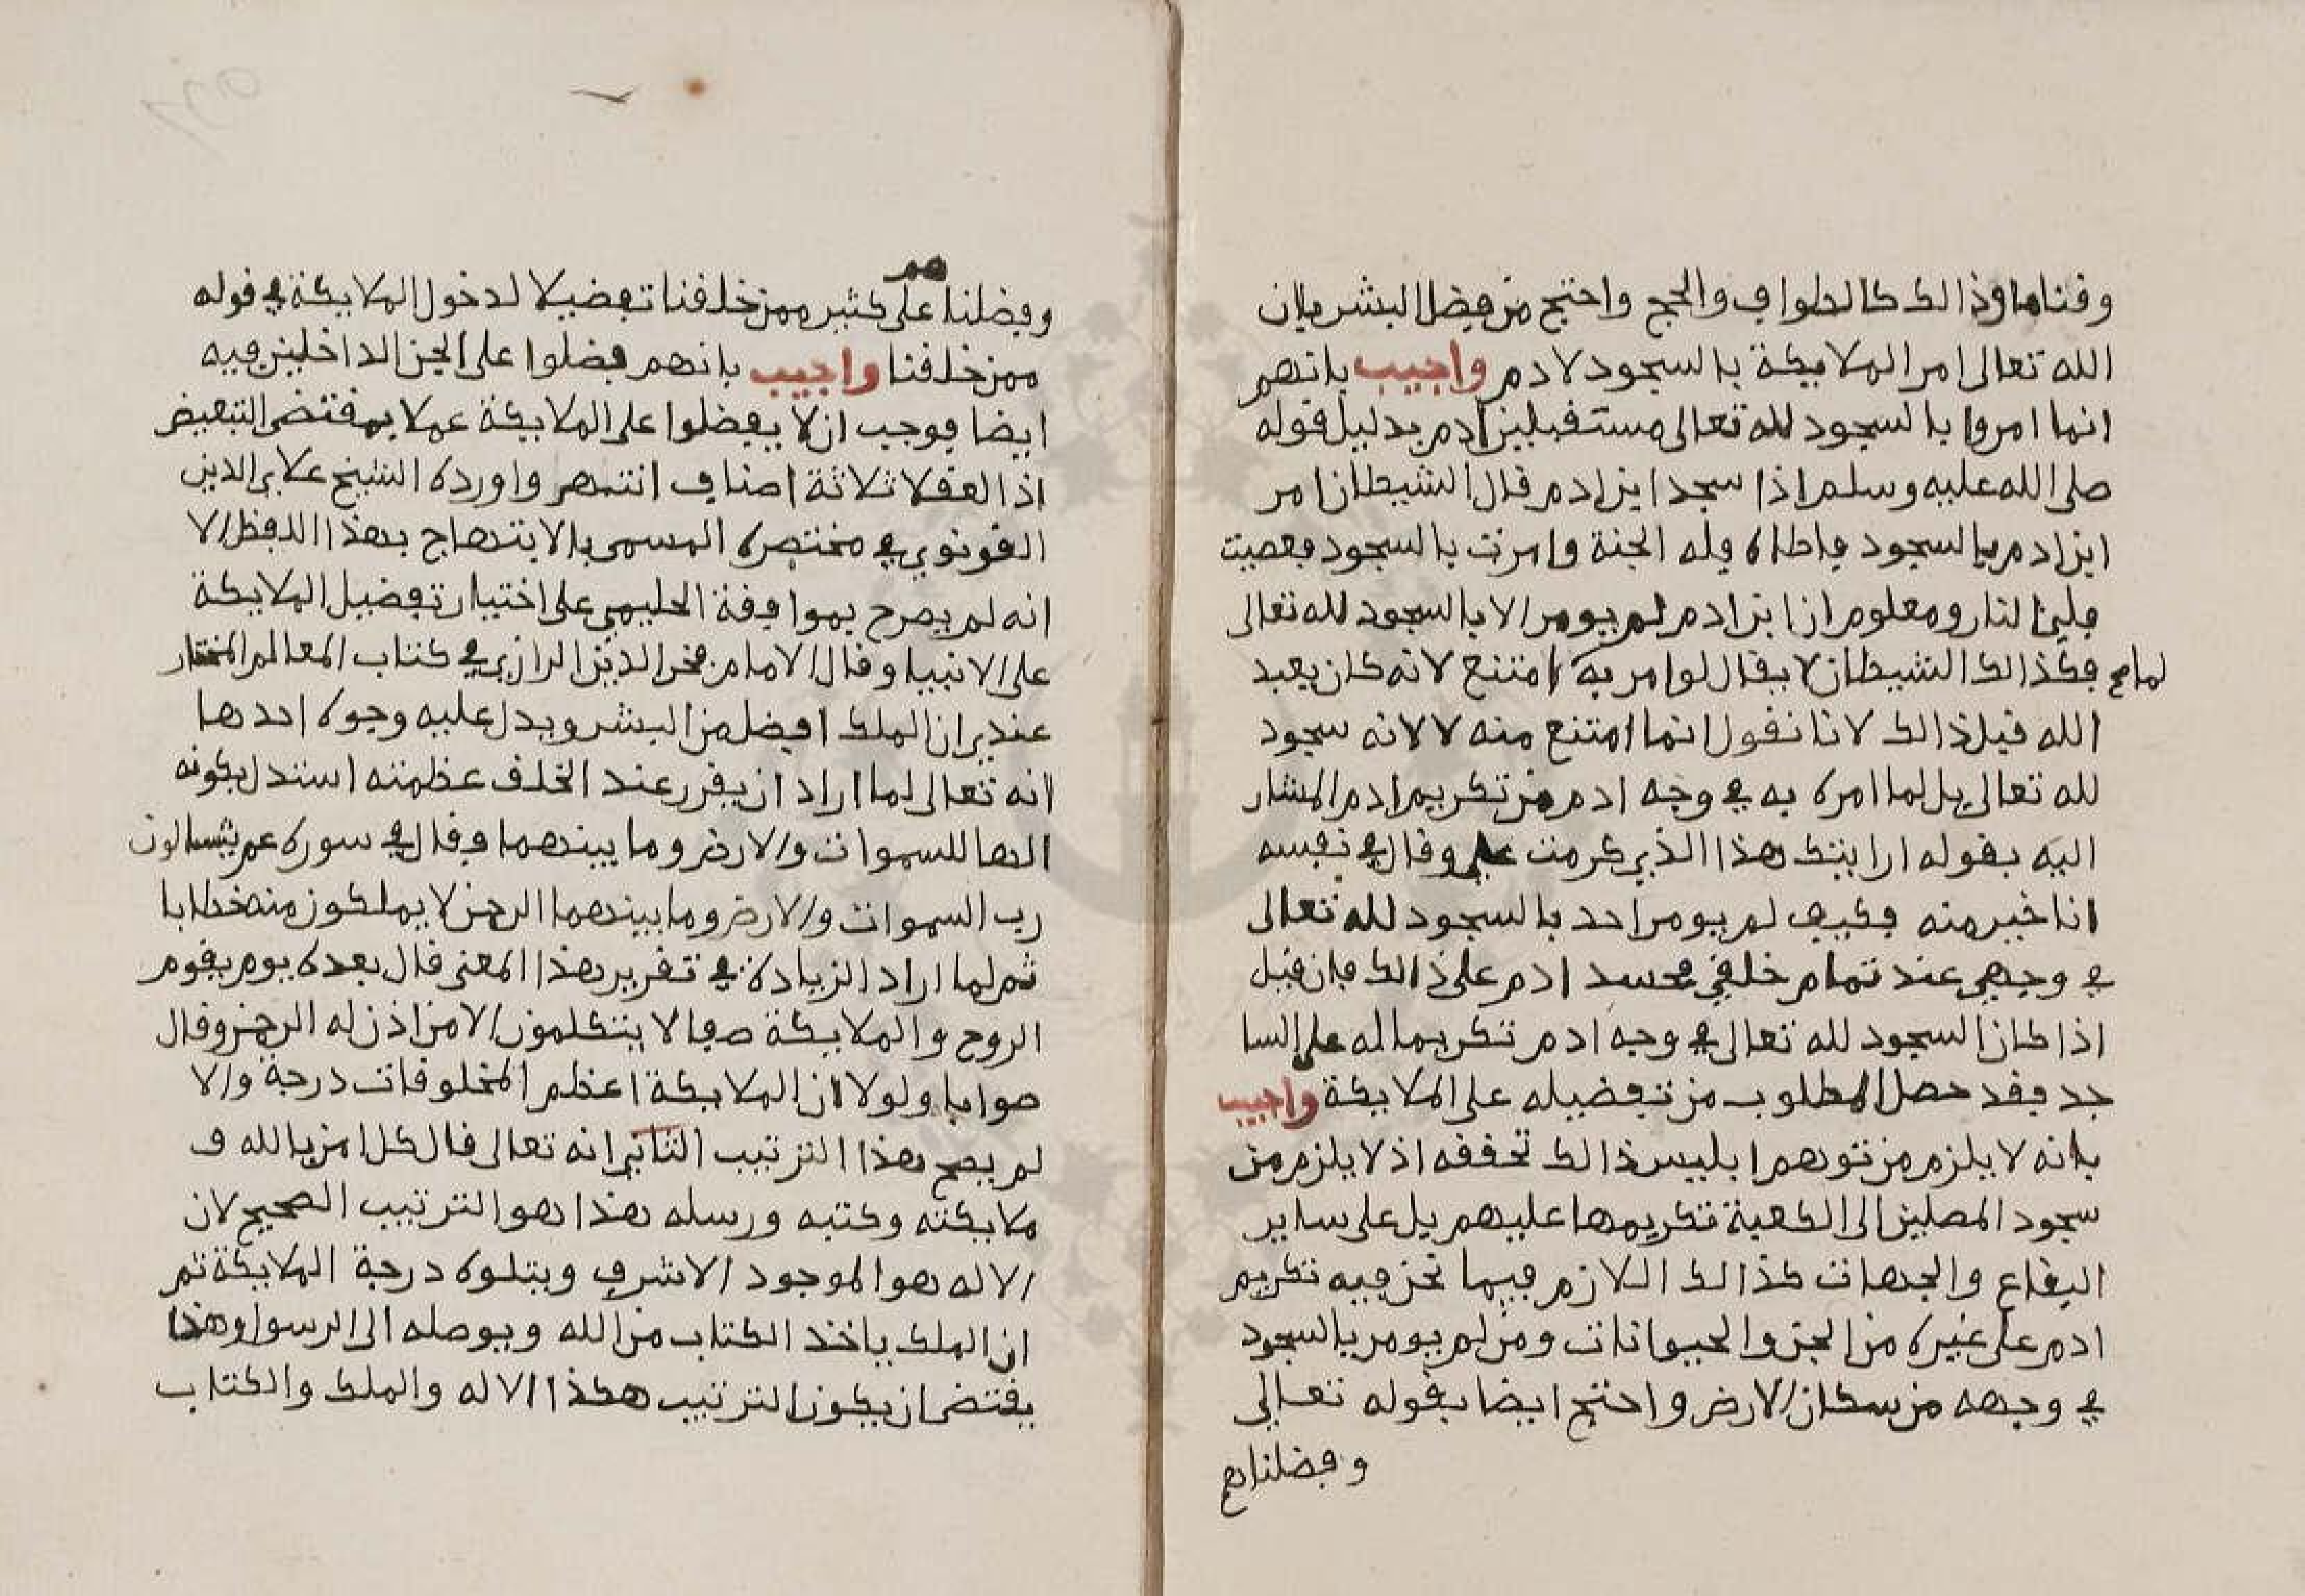 وقتا ما وذالك كالطواف والحج واحتج من فضل البشر بان
الله تعالى امر الملايكة بالسجود لادم واجيب بانهم
انما امروا بالسجود لله تعالى مستقبلين ادم بدليل قوله
صلى الله عليه وسلم اذا سجد ابن ادم قال الشيطان امر
ابن ادم بالسجود فاطاه فله الجنة وامرت بالسجود فعصيت
فلي النار ومعلوم ان ابن ادم لم يومر الا بالسجود لله تعالى
فكذالك الشيطان لا يقال لو امر به لما امتنع لانه كان يعبد
الله قبل ذالك لانا نقول انما امتنع منه لا لانه سجود
لله تعالى بل لما امره به في وجه ادم من تكريم ادم المشار
اليه بقوله ارايتك هذا الذي كرمت علي وقال في نفسه
انا خير منه فكيف لم يومر احد بالسجود لله تعالى
في وجهي عند تمام خلقي فحسد ادم على ذالك فان قيل
اذا كان السجود لله تعالى في وجه ادم تكريما له على السا
جد فقد حصل المطلوب من تفضيله على الملايكة واجيب
بانه لا يلزم من توهم ابليس ذالك تحققه اذ لا يلزم من
سجود المصلين الى الكعبة تكريمها عليهم بل على ساير
البقاع والجهات كذالك اللازم فيما نحن فيه تكريم
ادم على غيره من الجن والحيوانات ومن لم يومر بالسجود
في وجهه من سكان الارض واحتج ايضا بقوله تعالى
وفضلناهم
وفضلناهم على كثير ممن خلقنا تفضيلا لدخول الملايكة في قوله
ممن خلقنا واجيب بانهم فضلوا على الجن الداخلين فيه
ايضا فوجب ان لا يفضلوا على الملايكة عملا بمقتضى التبعيض
اذ العقلا ثلاثة اصناف انتهى واورده الشيخ علاي الدين
القونوي في مختصره المسمى بالابتهاج بهذا اللفظ الا
انه لم يصرح بموافقة الحليمي على اختيار تفضيل الملايكة
على الانبيا وقال الامام فخر الدين الرازي في كتاب المعالم المختار
عندي ان الملك افضل من البشر ويدل عليه وجوه احدها
انه تعالى لما اراد ان يقرر عند الخلف عظمته استدل بكونه
الها للسموات والارض وما بينهما فقال في سورة عم يتسالون
رب السموات والارض وما بينهما الرحمن لا يملكون منه خطابا
ثم لما اراد الزيادة في تقرير هذا المعنى قال بعده يوم يقوم
الروح والملايكة صفا لا يتكلمون الا من اذن له الرحمن وقال
صوابا ولولا ان الملايكة اعظم المخلوقات درجة والا
لم يصح هذا الترتيب الثاني انه تعالى قال كل امن بالله و
ملايكته وكتبه ورسله هذا هو الترتيب الصحيح لان
الاله هو الموجود الاشرف ويتلوه درجة الملايكة ثم
ان الملك ياخذ الكتاب من الله ويوصله الى الرسول وهذا
يقتضي ان يكون الترتيب هكذا الاله والملك والكتاب